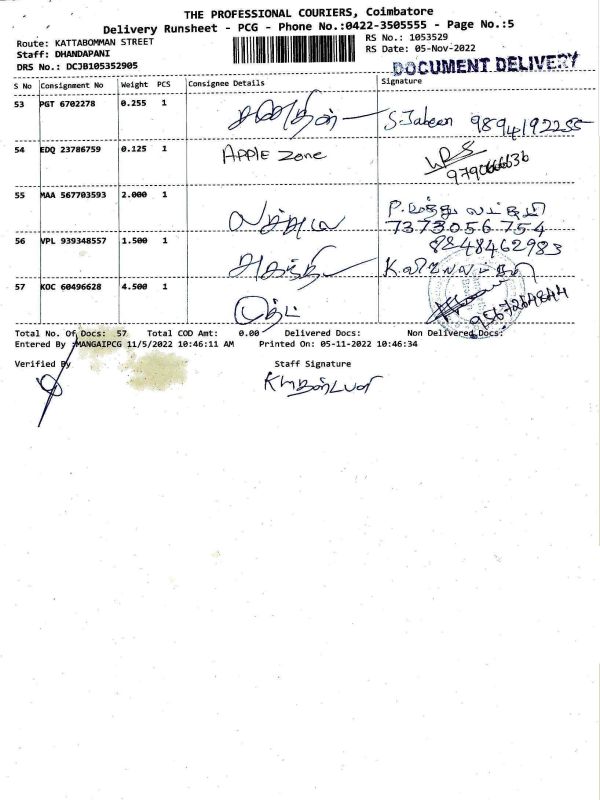 THE PROFESSIONAL COURIERS, Coimbatore
Delivery Runsheet - PCG - Phone No.:0422-3505555 - Page No.:5
Route: KATTABOMMAN STREET
RS No.: 1053529
Staff: DHANDAPANI
RS Date: 05-Nov-2022
DRS No.: DCJB105352905
DOCUMENT DELIVERY
S No Consignment No Weight PCS Consignee Details Signature
53 PGT 6702278 0.255 1 S.Jabeen 9894192255
54 EDQ 23786759 0.125 1 APPLE Zone
9790666636
55 MAA 567703593 2.000 1
7373056 754
56 VPL 939348557 1.500 1 8248462983
57 KOC 60496628 4.500 1
9567264844
Total No. Of Docs: 57 Total COD Amt: 0.00 Delivered Docs: Non Delivered Docs:
Entered By :MANGAIPCG 11/5/2022 10:46:11 AM Printed On: 05-11-2022 10:46:34
Verified By Staff Signature